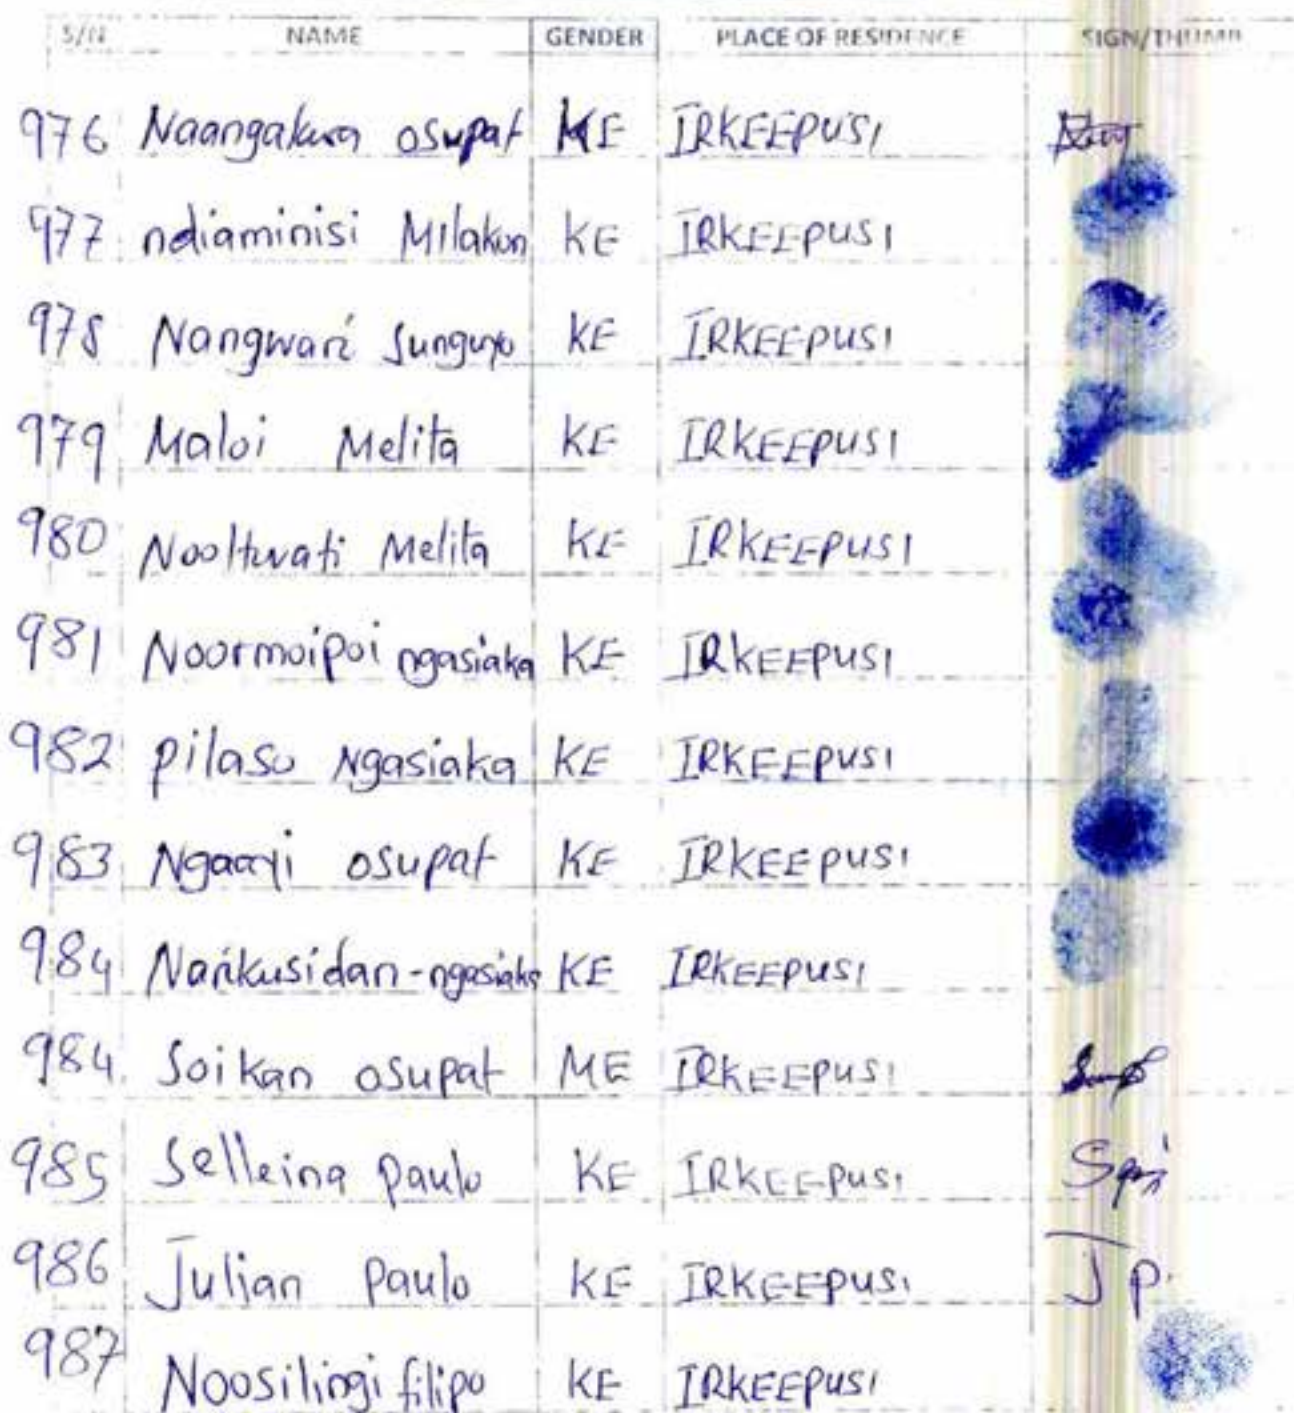 S/N NAME GENDER PLACE OF RESIDENCE SIGN/THUMB
976 Naangakura osupat KE IRKEEPUSI
977 ndiaminisi Milakon KE IRKEEPUSI
978 Nangwari Sunguyo KE IRKEEPUSI
979 Maloi Melita KE IRKEEPUSI
980 Nooltwati Melita KE IRKEEPUSI
981 Noormoipoi ngasiaka KE IRKEEPUSI
982 pilaso Ngasiaka KE IRKEEPUSI
983 Ngaayi osupat KE IRKEEPUSI
984 Narikusidan-ngasiaka KE IRKEEPUSI
984 Soikan osupat ME IRKEEPUSI
985 Selleina paulo KE IRKEEPUSI
986 Julian paulo KE IRKEEPUSI J P.
987 Noosilingi filipo KE IRKEEPUSI